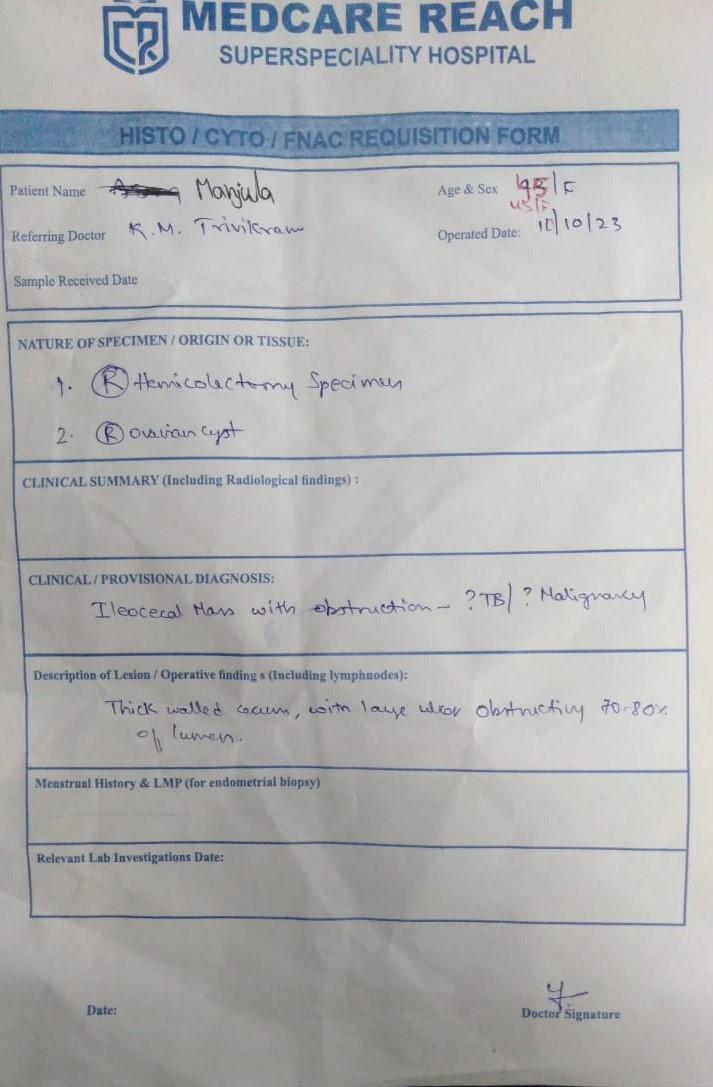 MEDCARE REACH
SUPERSPECIALITY HOSPITAL
HISTO / CYTO / FNAC REQUISITION FORM
Patient Name Manjula Age & Sex /F
45/F
Referring Doctor K.M. Trivikram Operated Date: 10/10/23
Sample Received Date
NATURE OF SPECIMEN / ORIGIN OR TISSUE:
1. (R) Hemicolectomy Specimen
2. (R) ovarian cyst
CLINICAL SUMMARY (Including Radiological findings) :
CLINICAL / PROVISIONAL DIAGNOSIS:
Ileocecal Mass with obstruction - ? TB/ ? Malignancy
Description of Lesion / Operative finding s (Including lymphnodes):
Thick walled cecum, with large ulcer obstructing 70-80%
of lumen.
Menstrual History & LMP (for endometrial biopsy)
Relevant Lab Investigations Date:
Date:
Doctor Signature